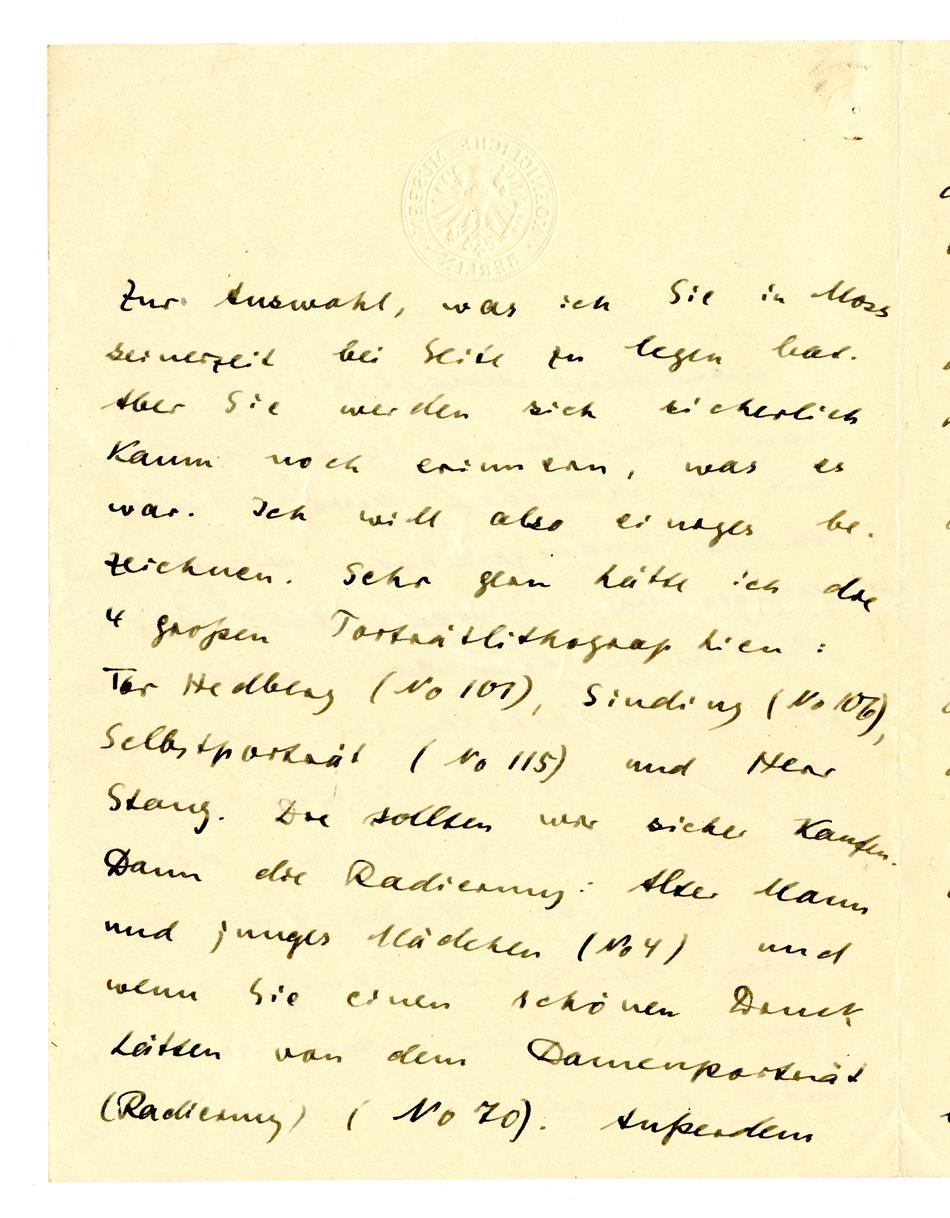 KOENIGLICHE MUSEEN
BERLIN
Zur Auswahl, was ich Sie in Moss
seinerzeit bei Seite zu legen bat.
Aber Sie werden sich sicherlich
kaum noch erinnern, was es
war. Ich will also einiges be-
zeichnen. Sehr gern hätte ich die
4 großen Porträtlithographien:
Tor Hedberg (No 101), Sinding (No 106),
Selbstporträt (No 115) und Herr
Stang. Die sollten wir sicher kaufen.
Dann die Radierung: Alter Mann
und junges Mädchen (No 4) und
wenn Sie einen schönen Druck
hätten von dem Damenporträt
(Radierung) (No 70). Außerdem